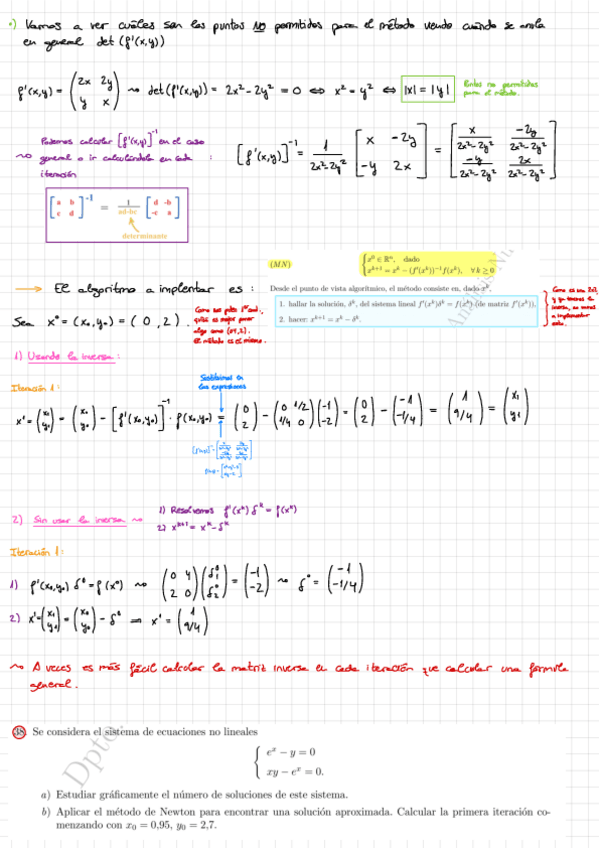 •) Vamos a ver cuáles son los puntos NO permitidos para el método viendo cuándo se anula
en general det (f'(x,y))
f'(x,y) = (2x 2y y x) ~> det(f'(x,y)) = 2x² - 2y² = 0 ⇔ x² = y² ⇔ |x| = |y|
Puntos no permitidos
para el método.
Podemos calcular [f'(x,y)]⁻¹ en el caso
general o ir calculándola en cada :
iteración
[f'(x,y)]⁻¹ = 1/(2x²-2y²) [x -2y -y 2x] = [x/(2x²-2y²) -2y/(2x²-2y²) -y/(2x²-2y²) 2x/(2x²-2y²)]
[a b c d]⁻¹ = 1/(ad-bc) [d -b -c a]
determinante
(MN) { x⁰ ∈ ℝⁿ, dado
x^{k+1} = x^k − (f'(x^k))⁻¹ f(x^k), ∀ k ≥ 0
→ El algoritmo a implentar es :
Desde el punto de vista algorítmico, el método consiste en, dado x^k,
1. hallar la solución, δ^k, del sistema lineal f'(x^k)δ^k = f(x^k) (de matriz f'(x^k)),
2. hacer: x^{k+1} = x^k − δ^k.
Sea x⁰ = (x₀,y₀) = (0,2).
El método es el mismo.
1) Usando la inversa :
Iteración 1 :
Sustituimos en
las expresiones
x¹ = (x₁ y₁) = (x₀ y₀) - [f'(x₀,y₀)]⁻¹ · f(x₀,y₀) = (0 2) - (0 1/2 1/4 0)(-1 -2) = (0 2) - (-1 -1/4) = (1 9/4) = (x₁ y₁)
2) Sin usar la inversa ~> 1) Resolvemos f'(x^k) δ^k = f(x^k)
2) x^{k+1} = x^k - δ^k
Iteración 1 :
1) f'(x₀,y₀) δ⁰ = f(x⁰) ~> (0 4 2 0)(δ₁⁰ δ₂⁰) = (-1 -2) ~> δ⁰ = (-1 -1/4)
2) x¹ = (x₁ y₁) = (x₀ y₀) - δ⁰ ⇒ x¹ = (1 9/4)
~> A veces es más fácil calcular la matriz inversa en cada iteración que calcular una fórmula
general.
38. Se considera el sistema de ecuaciones no lineales
{ e^x − y = 0
xy − e^x = 0.
a) Estudiar gráficamente el número de soluciones de este sistema.
b) Aplicar el método de Newton para encontrar una solución aproximada. Calcular la primera iteración co-
menzando con x₀ = 0,95, y₀ = 2,7.
Dpto.